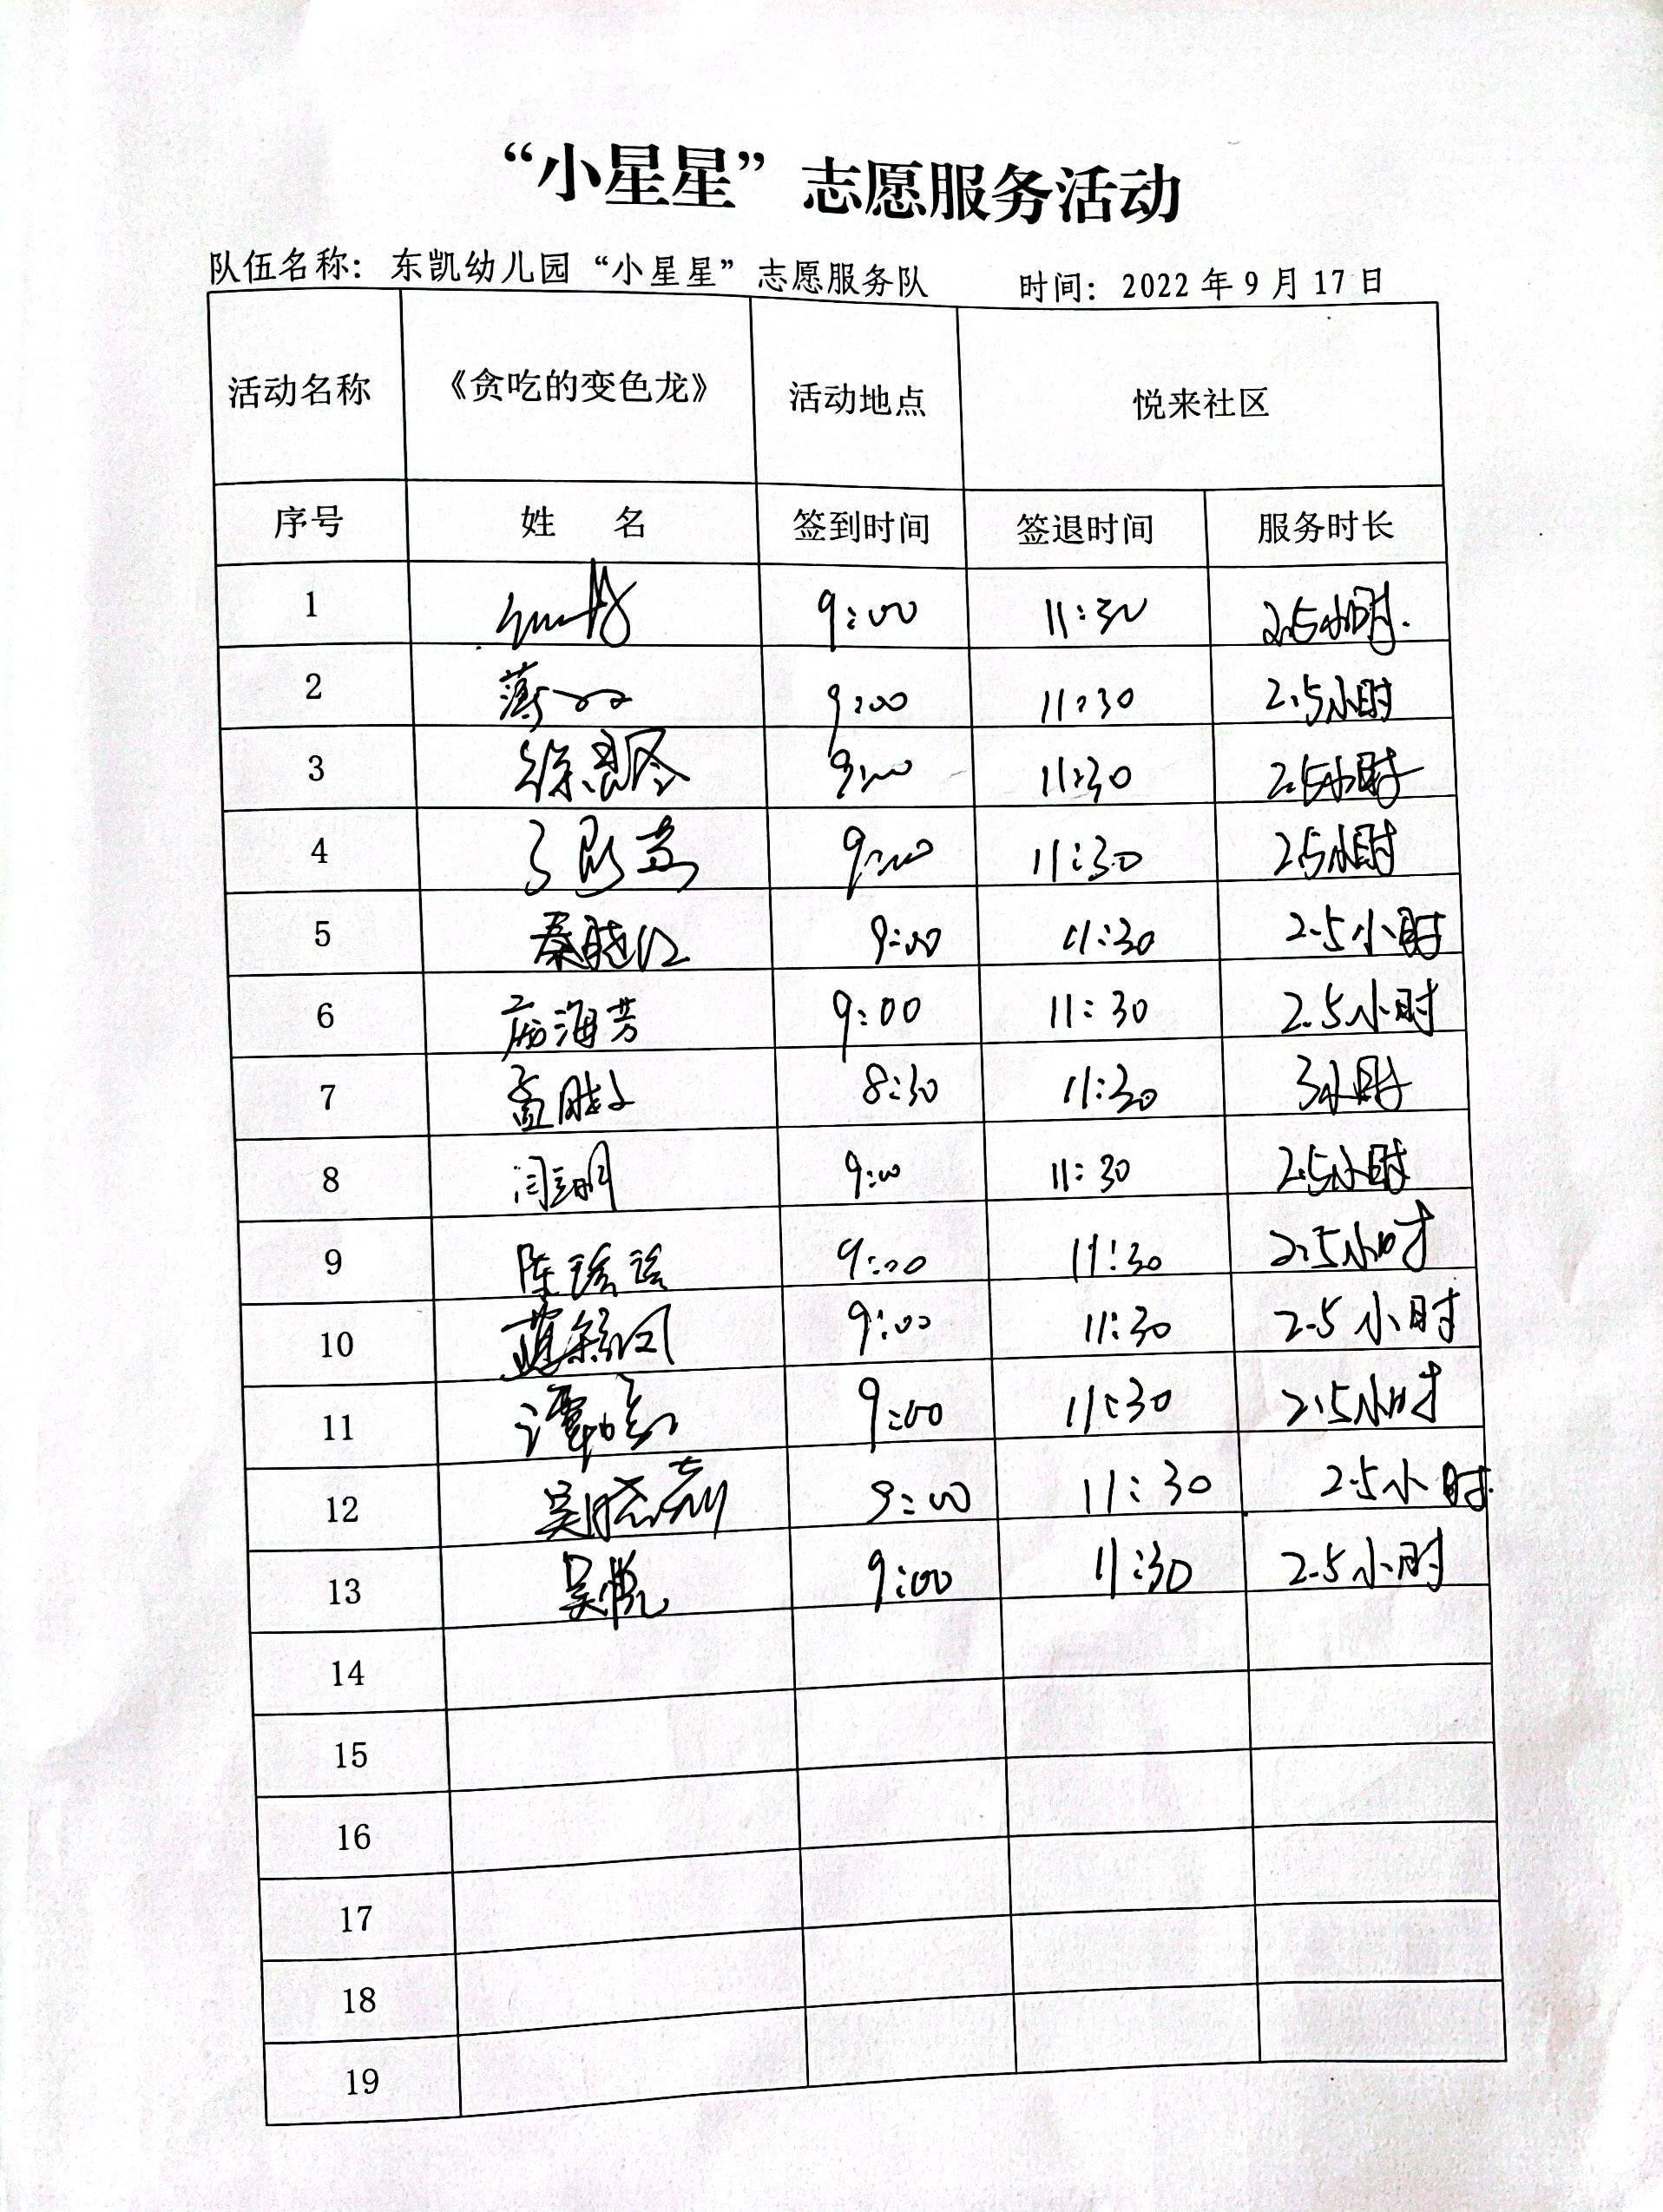 “小星星”志愿服务活动
队伍名称：东凯幼儿园“小星星”志愿服务队 时间：2022年9月17日
活动名称 《贪吃的变色龙》 活动地点 悦来社区
序号 姓 名 签到时间 签退时间 服务时长
1 9:00 11:30 2.5小时.
2 9:00 11:30 2.5小时
3 9:00 11:30 2.5小时
4 9:00 11:30 2.5小时
5 秦晓红 9:00 11:30 2.5小时
6 厉海芳 9:00 11:30 2.5小时
7 9:00 11:30 3小时
8 闫明 9:00 11:30 2.5小时
9 陈瑶瑶 9:00 11:30 2.5小时
10 9:00 11:30 2.5小时
11 9:00 11:30 2.5小时
12 9:00 11:30 2.5小时.
13 吴悦 9:00 11:30 2.5小时
14
15
16
17
18
19